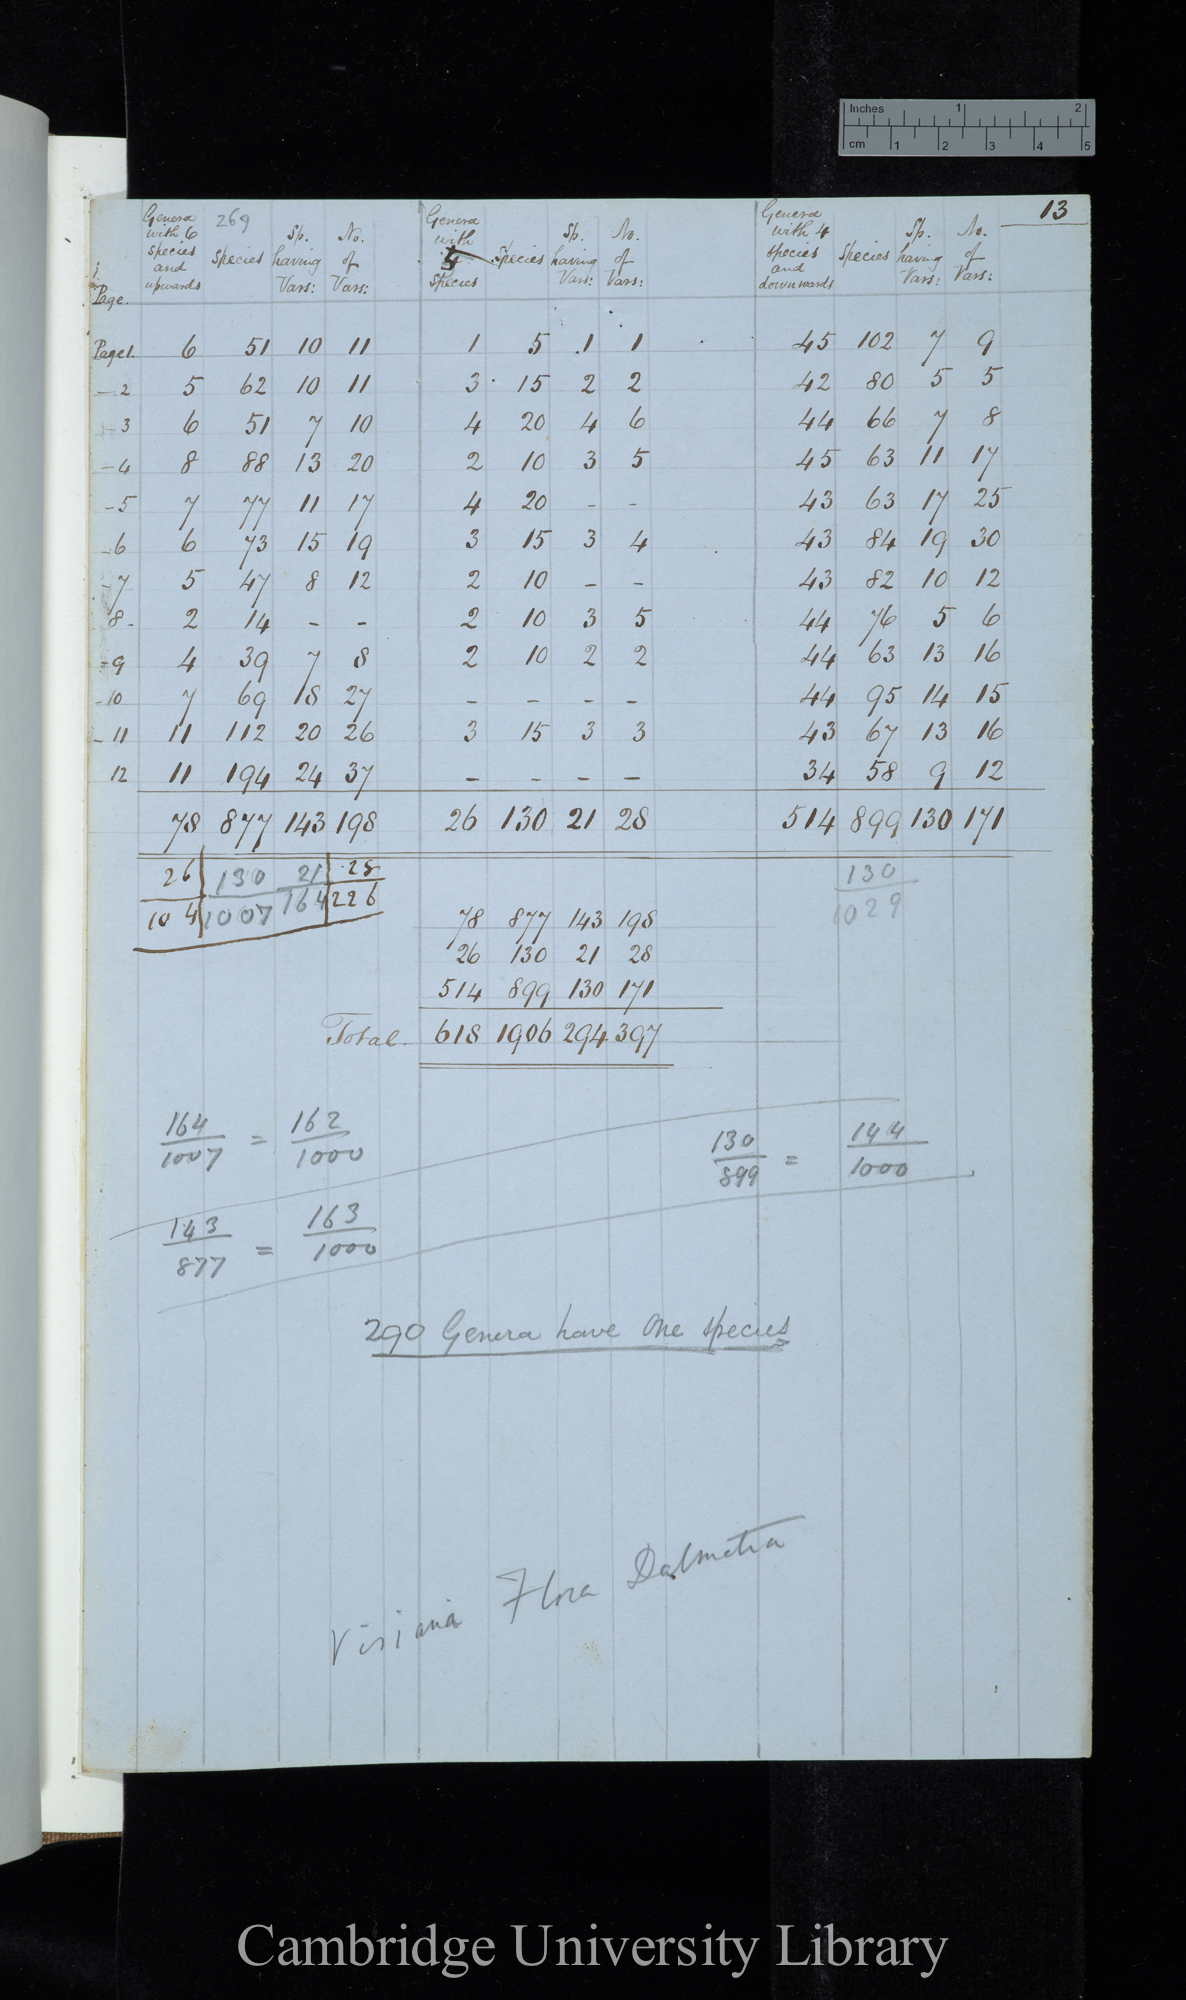 Inches 1 2
cm 1 2 3 4 5
13
269
Page. Genera with 6 species and upwards Species Sp. having Vars: No. of Vars: Genera with 5 Species Species Sp. having Vars: No. of Vars: Genera with 4 species and downwards Species Sp. having Vars: No. of Vars:
Page 1. 6 51 10 11 1 5 1 1 45 102 7 9
- 2 5 62 10 11 3 15 2 2 42 80 5 5
- 3 6 51 7 10 4 20 4 6 44 66 7 8
- 4 8 88 13 20 2 10 3 5 45 63 11 17
- 5 7 77 11 17 4 20 - - 43 63 17 25
- 6 6 73 15 19 3 15 3 4 43 84 19 30
- 7 5 47 8 12 2 10 - - 43 82 10 12
8 - 2 14 - - 2 10 3 5 44 76 5 6
- 9 4 39 7 8 2 10 2 2 44 63 13 16
- 10 7 69 18 27 - - - - 44 95 14 15
- 11 11 112 20 26 3 15 3 3 43 67 13 16
12 11 194 24 37 - - - - 34 58 9 12
78 877 143 198 26 130 21 28 514 899 130 171
26 130 21 28 130
104 1007 164 226 1029
78 877 143 198
26 130 21 28
514 899 130 171
Total. 618 1906 294 397
164/1007 = 162/1000 130/899 = 144/1000
143/877 = 163/1000
290 Genera have One species
Visiania Flora Dalmatia
Cambridge University Library